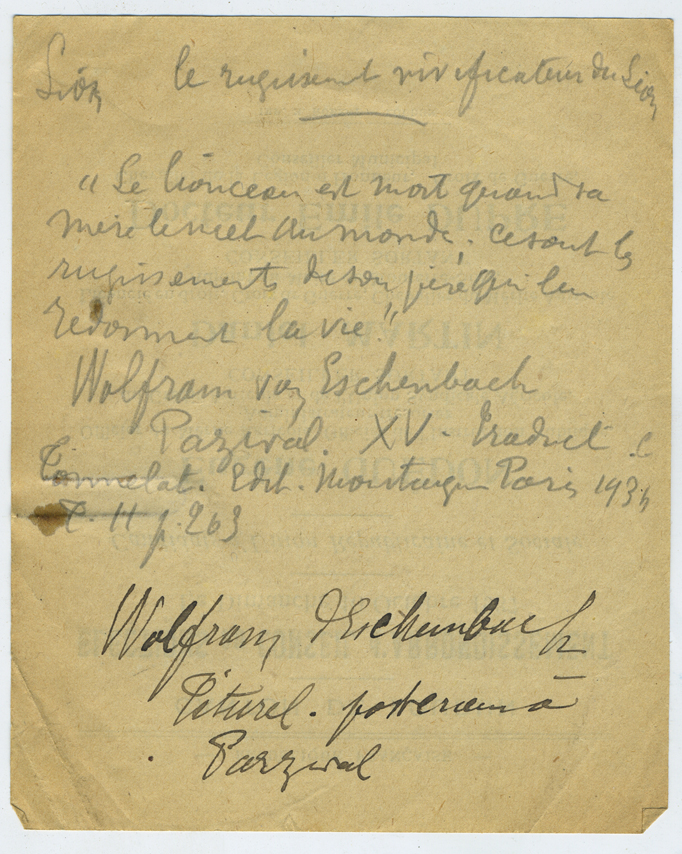 Lion le rugissement vivificateur du Lion
"Le lionceau est mort quand sa
mère le met au monde. ce sont les
rugissements de son père qui lui
redonnent la vie".
Wolfram von Eschenbach
Parzival. XV. Traduct.
Tonnelat. Edit. Montaigne Paris 1934
T. II p. 263
Wolfram d'Eschenbach
Titurel. posterieur à
Parzival